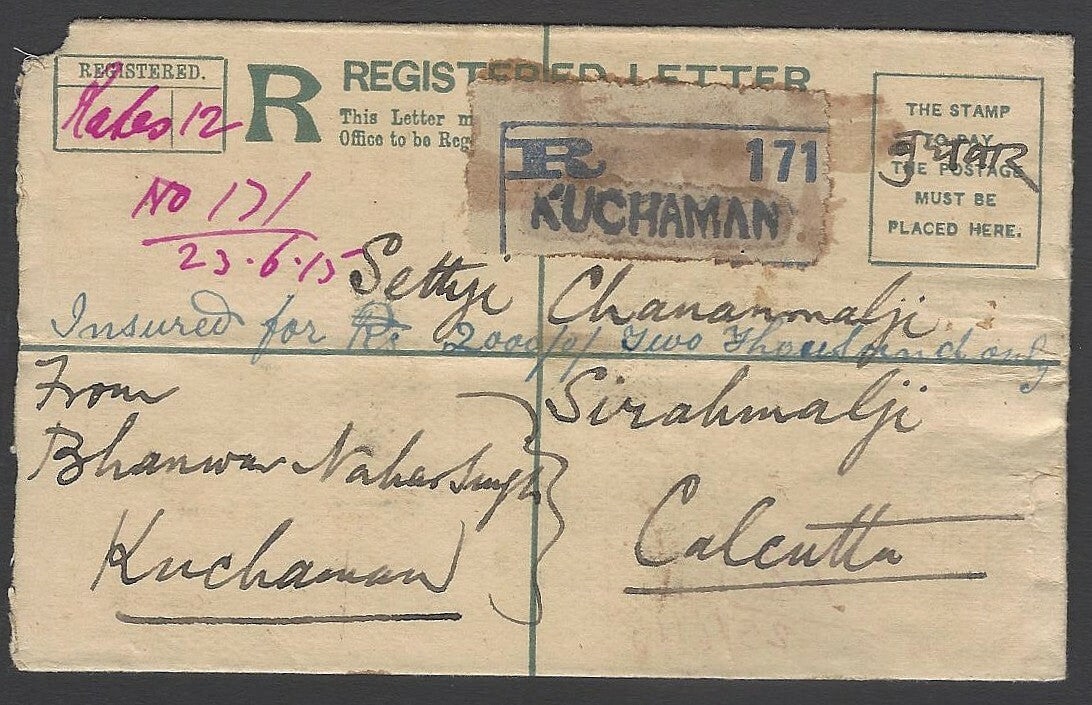 REGISTERED.
12
R
REGISTERED LETTER
This Letter m
Office to be Reg
R 171
KUCHAMAN
THE STAMP
TO PAY
THE POSTAGE
MUST BE
PLACED HERE.
No 171
23.6.15
Settyji Chananmalji
Insured for Rs 2000/0/ Two Thousand only
Sirahmalji
Calcutta
From
Bhanwar Naharsingh
Kuchaman